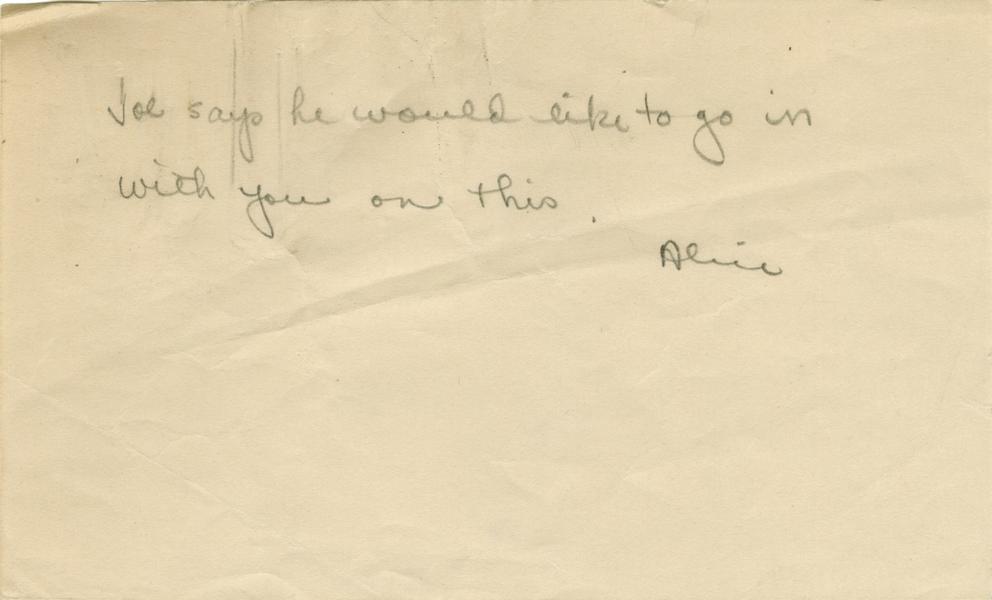 Joe says he would like to go in
with you on this.
Alice